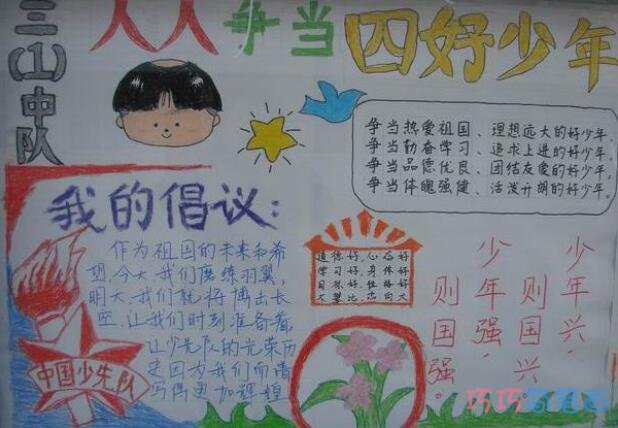 三(1)中队
人人争当四好少年
争当热爱祖国、理想远大的好少年,
争当勤奋学习、追求上进的好少年,
争当品德优良、团结友爱的好少年,
争当体魄强健、活泼开朗的好少年。
我的倡议:
作为祖国的未来和希
望,今天,我们磨练羽翼,
明天,我们就将搏击长
空,让我们时刻准备着,
让少先队的光荣历
史因为我们而谱
写得更加辉煌
道德好,心态好
学习好,身体好
少年兴,
则国兴
少年强,
则国强。
中国少先队
巧巧简笔画